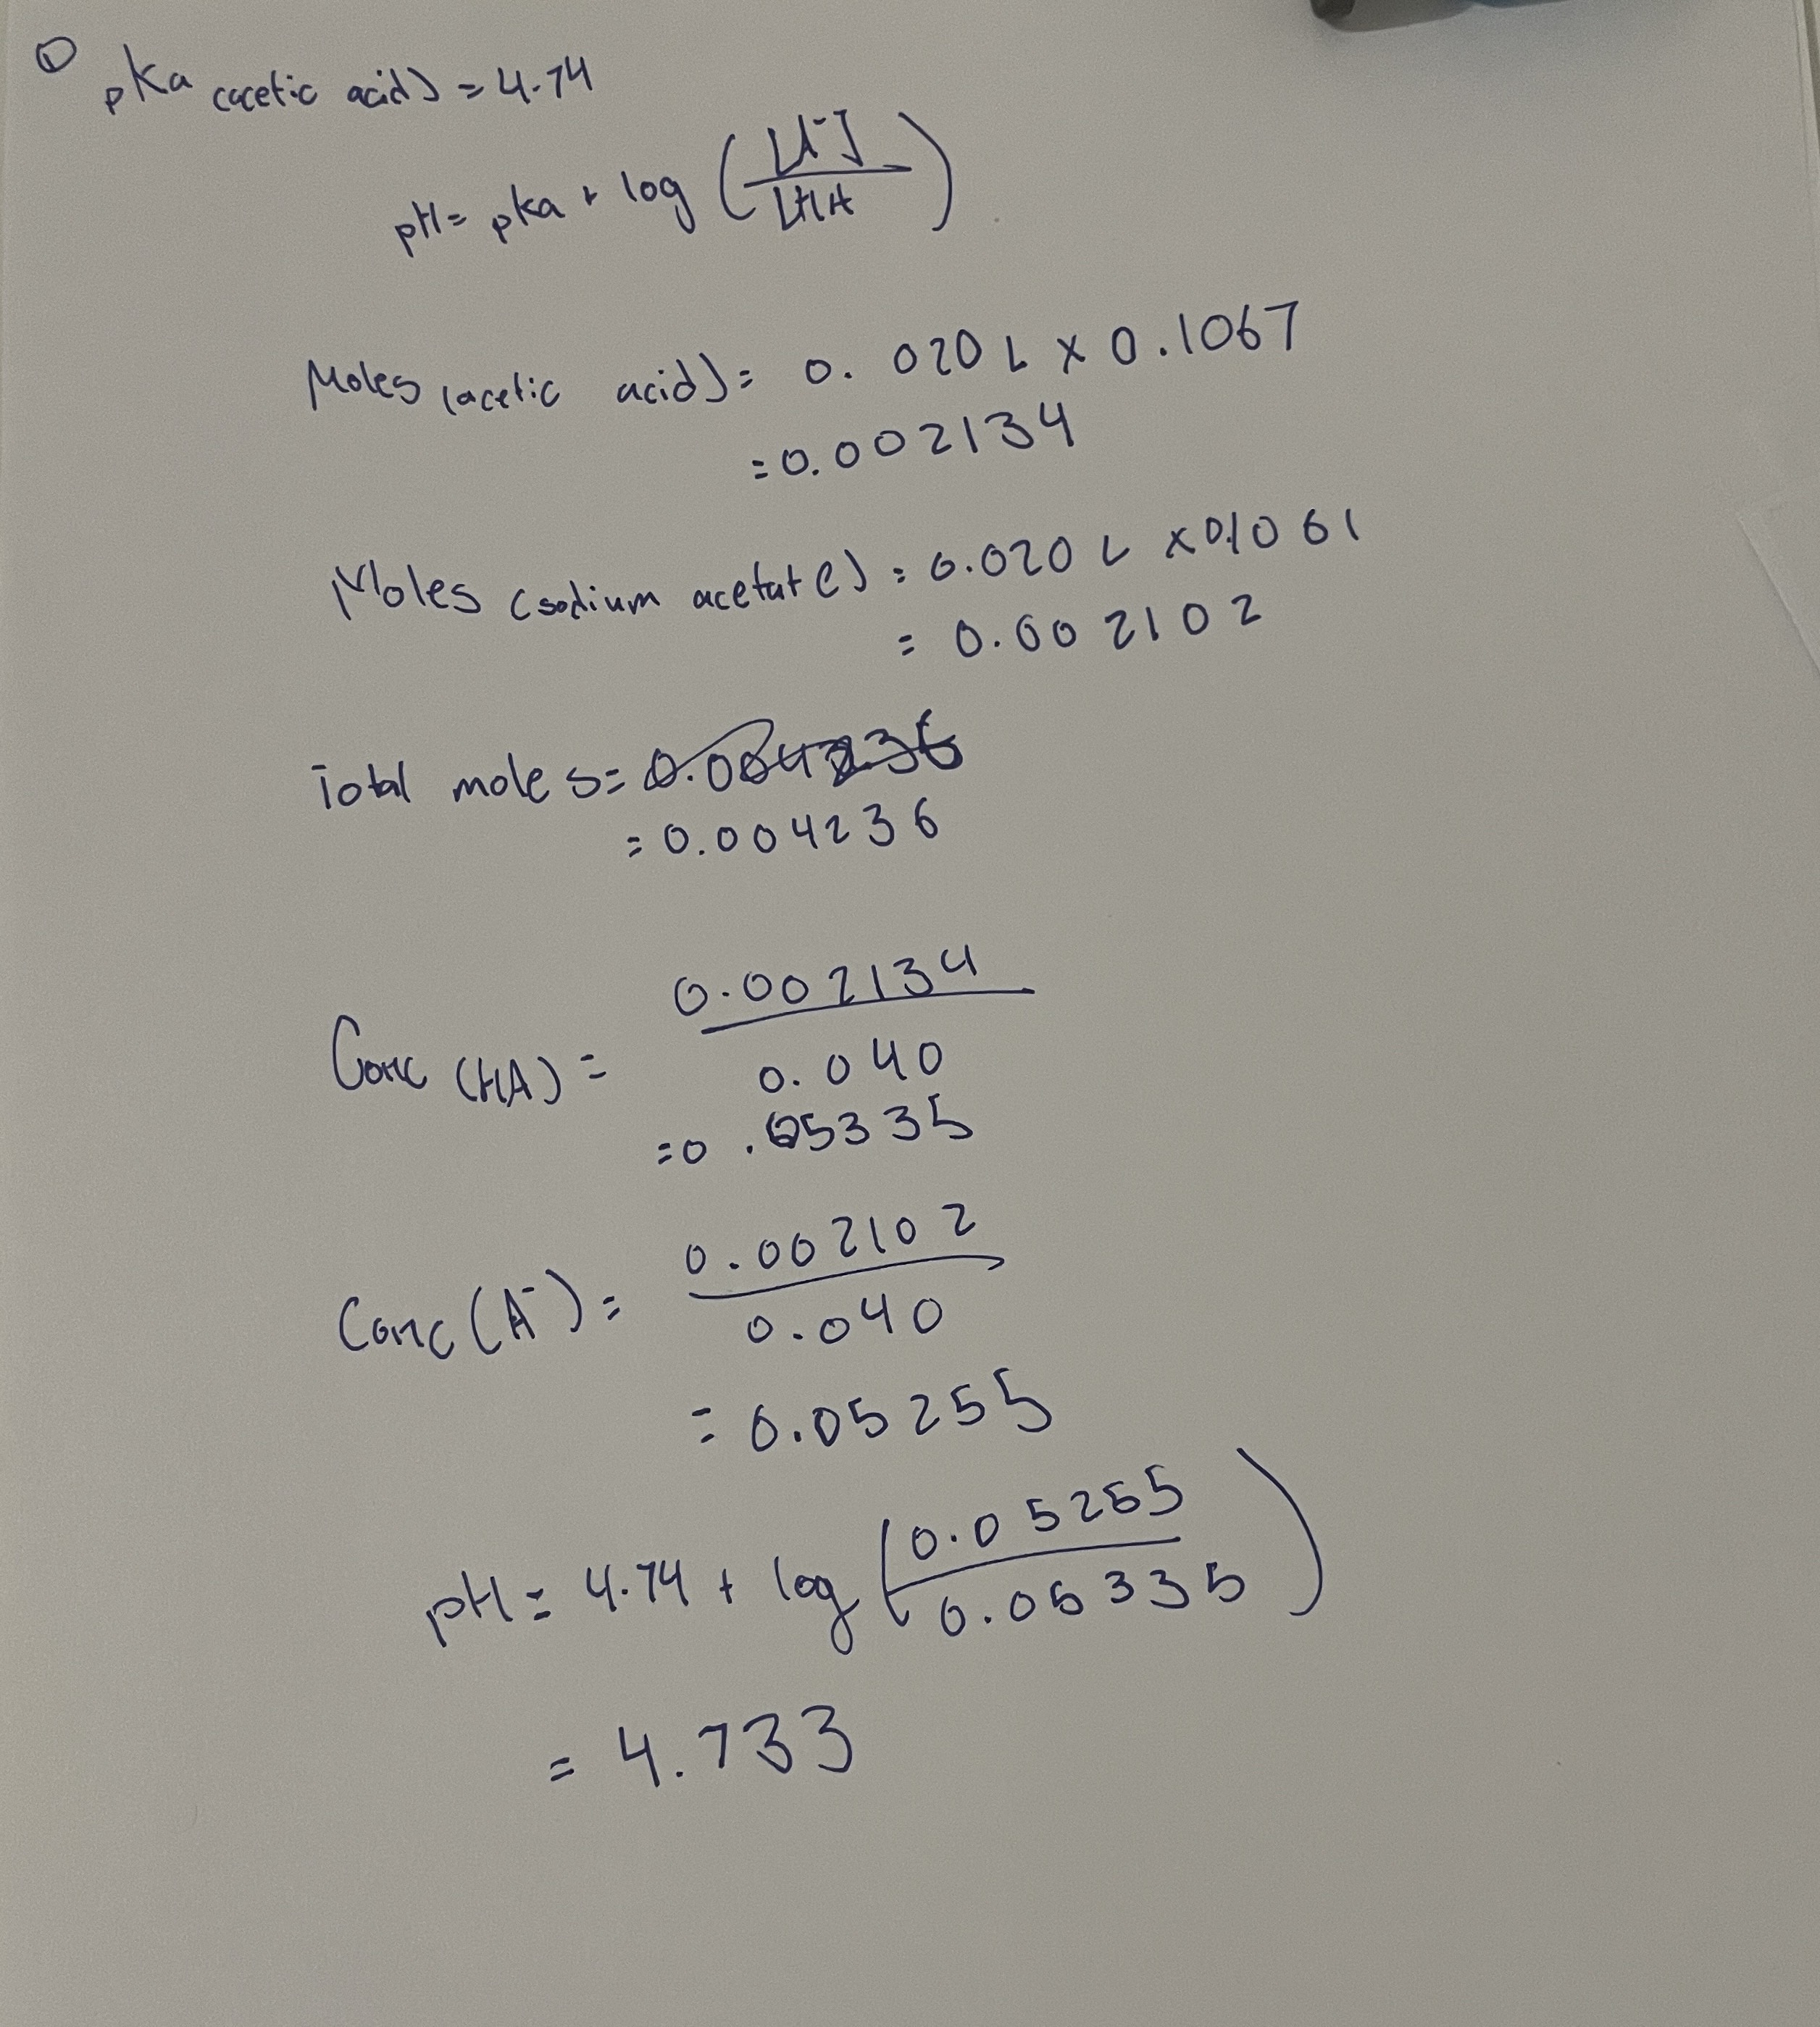 ① pKa (acetic acid) = 4.74
pH = pka + log ([A-] / [HA)
Moles (acetic acid) = 0.020 L x 0.1067
= 0.002134
Moles (sodium acetate) = 0.020 L x 0.1061
= 0.002102
Total moles = 0.004236
= 0.004236
Conc (HA) = 0.002134 / 0.040
= 0.05335
Conc (A-) = 0.002102 / 0.040
= 0.05255
pH = 4.74 + log (0.05255 / 0.05335)
= 4.733